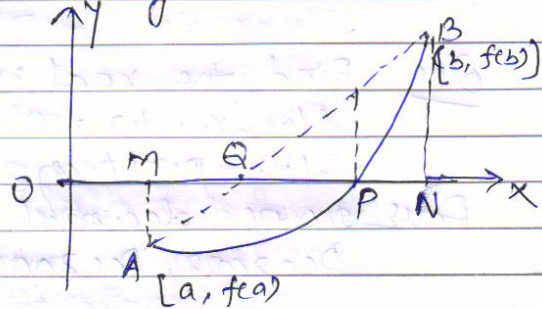 Y
B
[b, f(b)]
M
Q
O
P
N
X
A
[a, f(a)